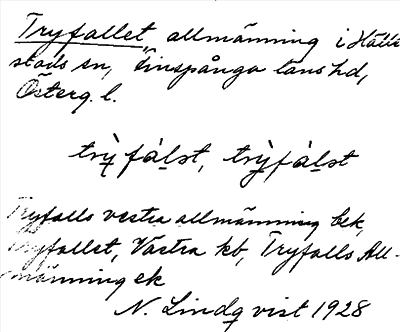 Tryfallet, allmänning i Hälle
stads sn, Finspånga läns hd,
Österg. l.
trỳfàlst, trỳfàlst
Tryfalls vestra allmänning bek,
Tryfallet, Västra kb, Tryfalls All-
männing ek
N. Lindqvist 1928